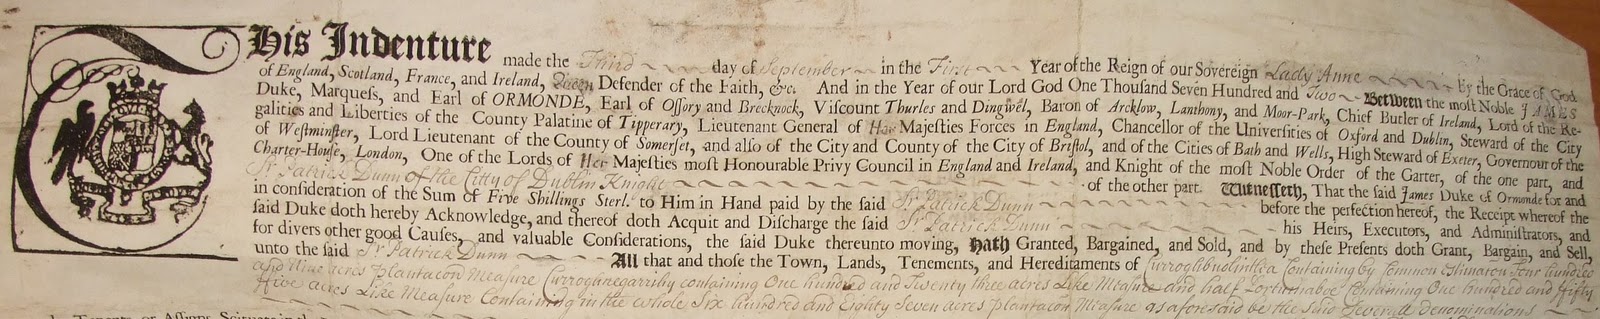 This Indenture made the Third day of September in the First Year of the Reign of our Sovereign Lady Anne by the Grace of God
of England, Scotland, France, and Ireland, Queen Defender of the Faith, &c. And in the Year of our Lord God One Thousand Seven Hundred and Two Between the most Noble JAMES
Duke, Marquess, and Earl of ORMONDE, Earl of Ossory and Brecknock, Viscount Thurles and Dingwel, Baron of Arcklow, Lanthony, and Moor-Park, Chief Butler of Ireland, Lord of the Re-
galities and Liberties of the County Palatine of Tipperary, Lieutenant General of Her Majesties Forces in England, Chancellor of the Universities of Oxford and Dublin, Steward of the City
of Westminster, Lord Lieutenant of the County of Somerset, and also of the City and County of the City of Bristol, and of the Cities of Bath and Wells, High Steward of Exeter, Governour of the
Charter-House, London, One of the Lords of Her Majesties most Honourable Privy Council in England and Ireland, and Knight of the most Noble Order of the Garter, of the one part, and
Sr. Patrick Dunn of the Citty of Dublin Knight of the other part. Witnesseth, That the said James Duke of Ormonde for and
in consideration of the Sum of Five Shillings Sterl. to Him in Hand paid by the said Sr. Patrick Dunn before the perfection hereof, the Receipt whereof the
said Duke doth hereby Acknowledge, and thereof doth Acquit and Discharge the said Sr. Patrick Dunn his Heirs, Executors, and Administrators, and
for divers other good Causes, and valuable Considerations, the said Duke thereunto moving, Hath Granted, Bargained, and Sold, and by these Presents doth Grant, Bargain, and Sell,
unto the said Sr. Patrick Dunn All that and those the Town, Lands, Tenements, and Hereditaments of Containing by Common Estimation four hundred
and Nine acres plantacon Measure Curroghnegarrihy containing One hundred and Twenty three acres Like Measure and half Containing One hundred and fifty
five acres Like Measure Containing in the whole Six hundred and Eighty Seven acres plantacon Measure as aforesaid be the said Severall denominations